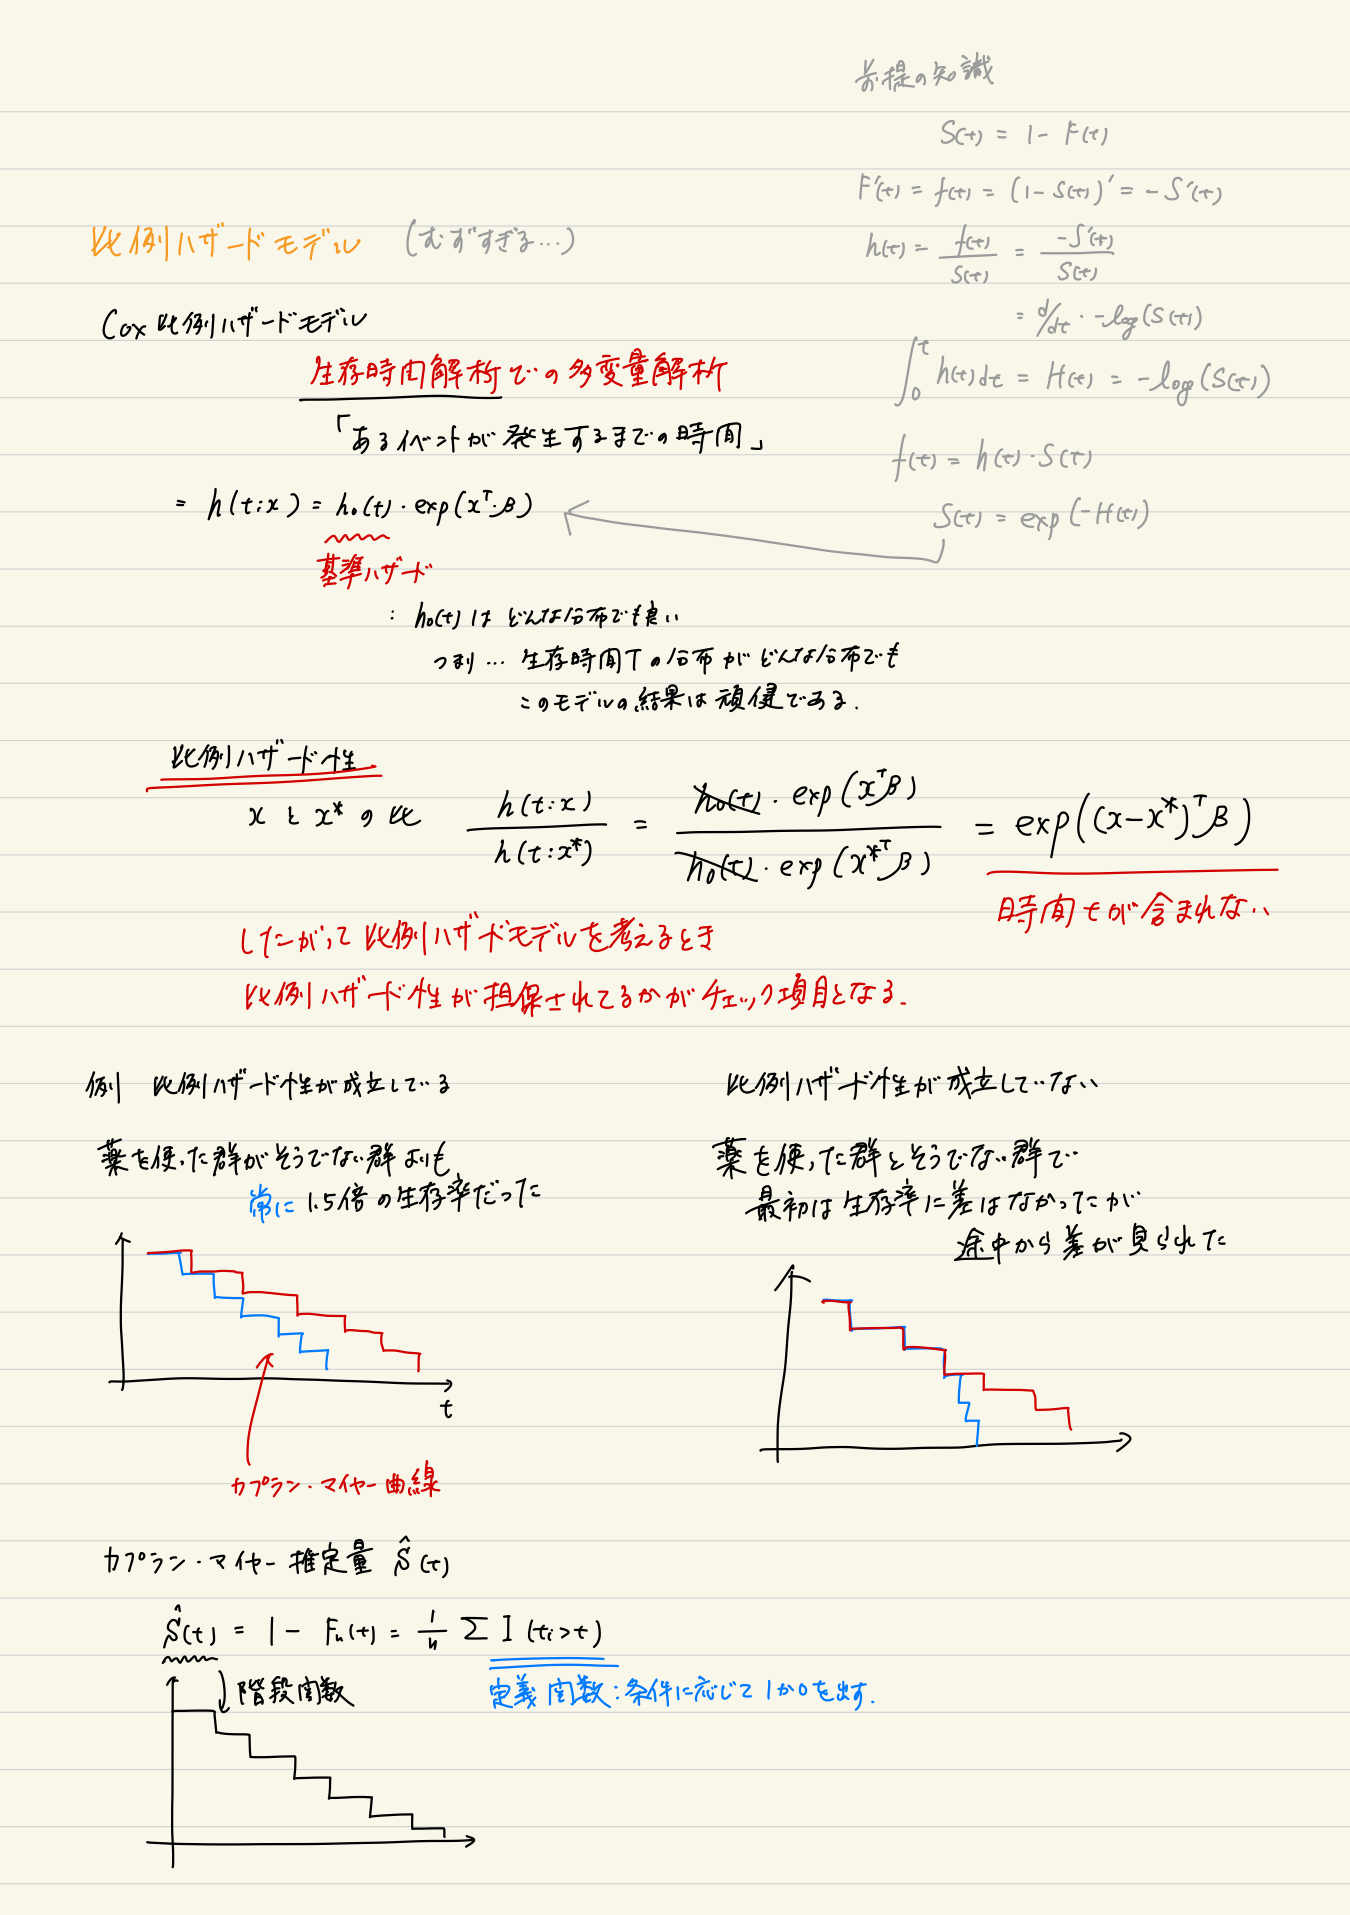 前提の知識
S(t) = 1 - F(t)
F'(t) = f(t) = (1 - S(t))' = -S'(t)
h(t) = f(t)/S(t) = -S'(t)/S(t)
= d/dt · -log(S(t))
∫₀ᵗ h(t)dt = H(t) = -log(S(t))
f(t) = h(t)·S(t)
S(t) = exp(-H(t))
比例ハザードモデル (むずすぎる…)
Cox 比例ハザードモデル
生存時間解析での多変量解析
「あるイベントが発生するまでの時間」
= h(t:x) = h₀(t)·exp(xᵀ·β)
基準ハザード
: h₀(t)はどんな分布でも良い
つまり… 生存時間Tの分布がどんな分布でも
このモデルの結果は頑健である.
比例ハザード性
xとx*の比 h(t:x)/h(t:x*) = h₀(t)·exp(xᵀβ)/h₀(t)·exp(x*ᵀβ) = exp((x-x*)ᵀβ)
時間tが含まれない
したがって比例ハザードモデルを考えるとき
比例ハザード性が担保されてるかがチェック項目となる.
例 比例ハザード性が成立している
薬を使った群がそうでない群よりも
常に1.5倍の生存率だった
t
カプラン・マイヤー曲線
比例ハザード性が成立していない
薬を使った群とそうでない群で
最初は生存率に差はなかったが
途中から差が見られた
カプラン・マイヤー推定量 Ŝ(t)
Ŝ(t) = 1 - Fn(t) = 1/n Σ I(ti>t)
階段関数
定義関数:条件に応じて1か0を出す.